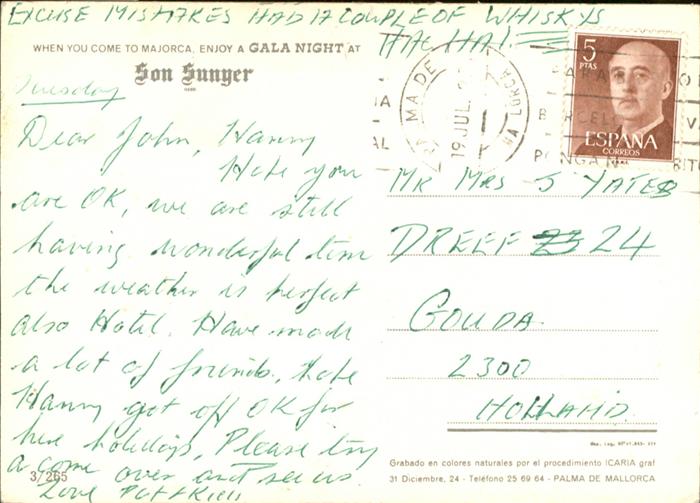 EXCUSE MISTAKES HAD A COUPLE OF WHISKYS
HA! HA!
WHEN YOU COME TO MAJORCA, ENJOY A GALA NIGHT AT
Son Sunyer
Tuesday
Dear John, Hanny
Hope you
are OK, we are still
having wonderful time
the weather is perfect
also Hotel. Have made
a lot of friends, hope
Hanny got off OK for
here holidays. Please try
a come over and see us
Love Pat
3/265
5
PTAS
ESPAÑA
CORREOS
19 JUL.
MR MRS J YATES
DREEF 24
GOUDA
2300
HOLLAND.
Grabado en colores naturales por el procedimiento ICARIA graf
31 Diciembre, 24 - Teléfono 25 69 64 - PALMA DE MALLORCA